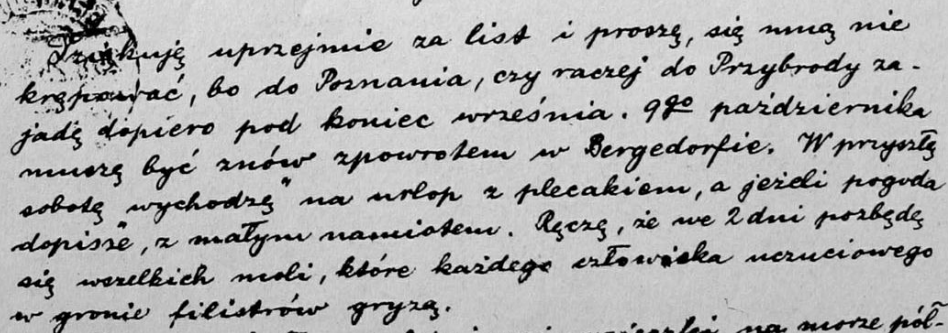 Dziękuję uprzejmie za list i proszę, się mną nie
krępować, bo do Poznania, czy raczej do Przybrody za-
jadę dopiero pod koniec września. 9go października
muszę być znów zpowrotem w Bergedorfie. W przyszłą
sobotę "wychodzę" na urlop z plecakiem, a jeżeli pogoda
dopisze, z małym namiotem. Ręczę, że we 2 dni pozbędę
się wszelkich moli, które każdego człowieka uczuciowego
w gronie filistrów gryzą.
na morze pół-